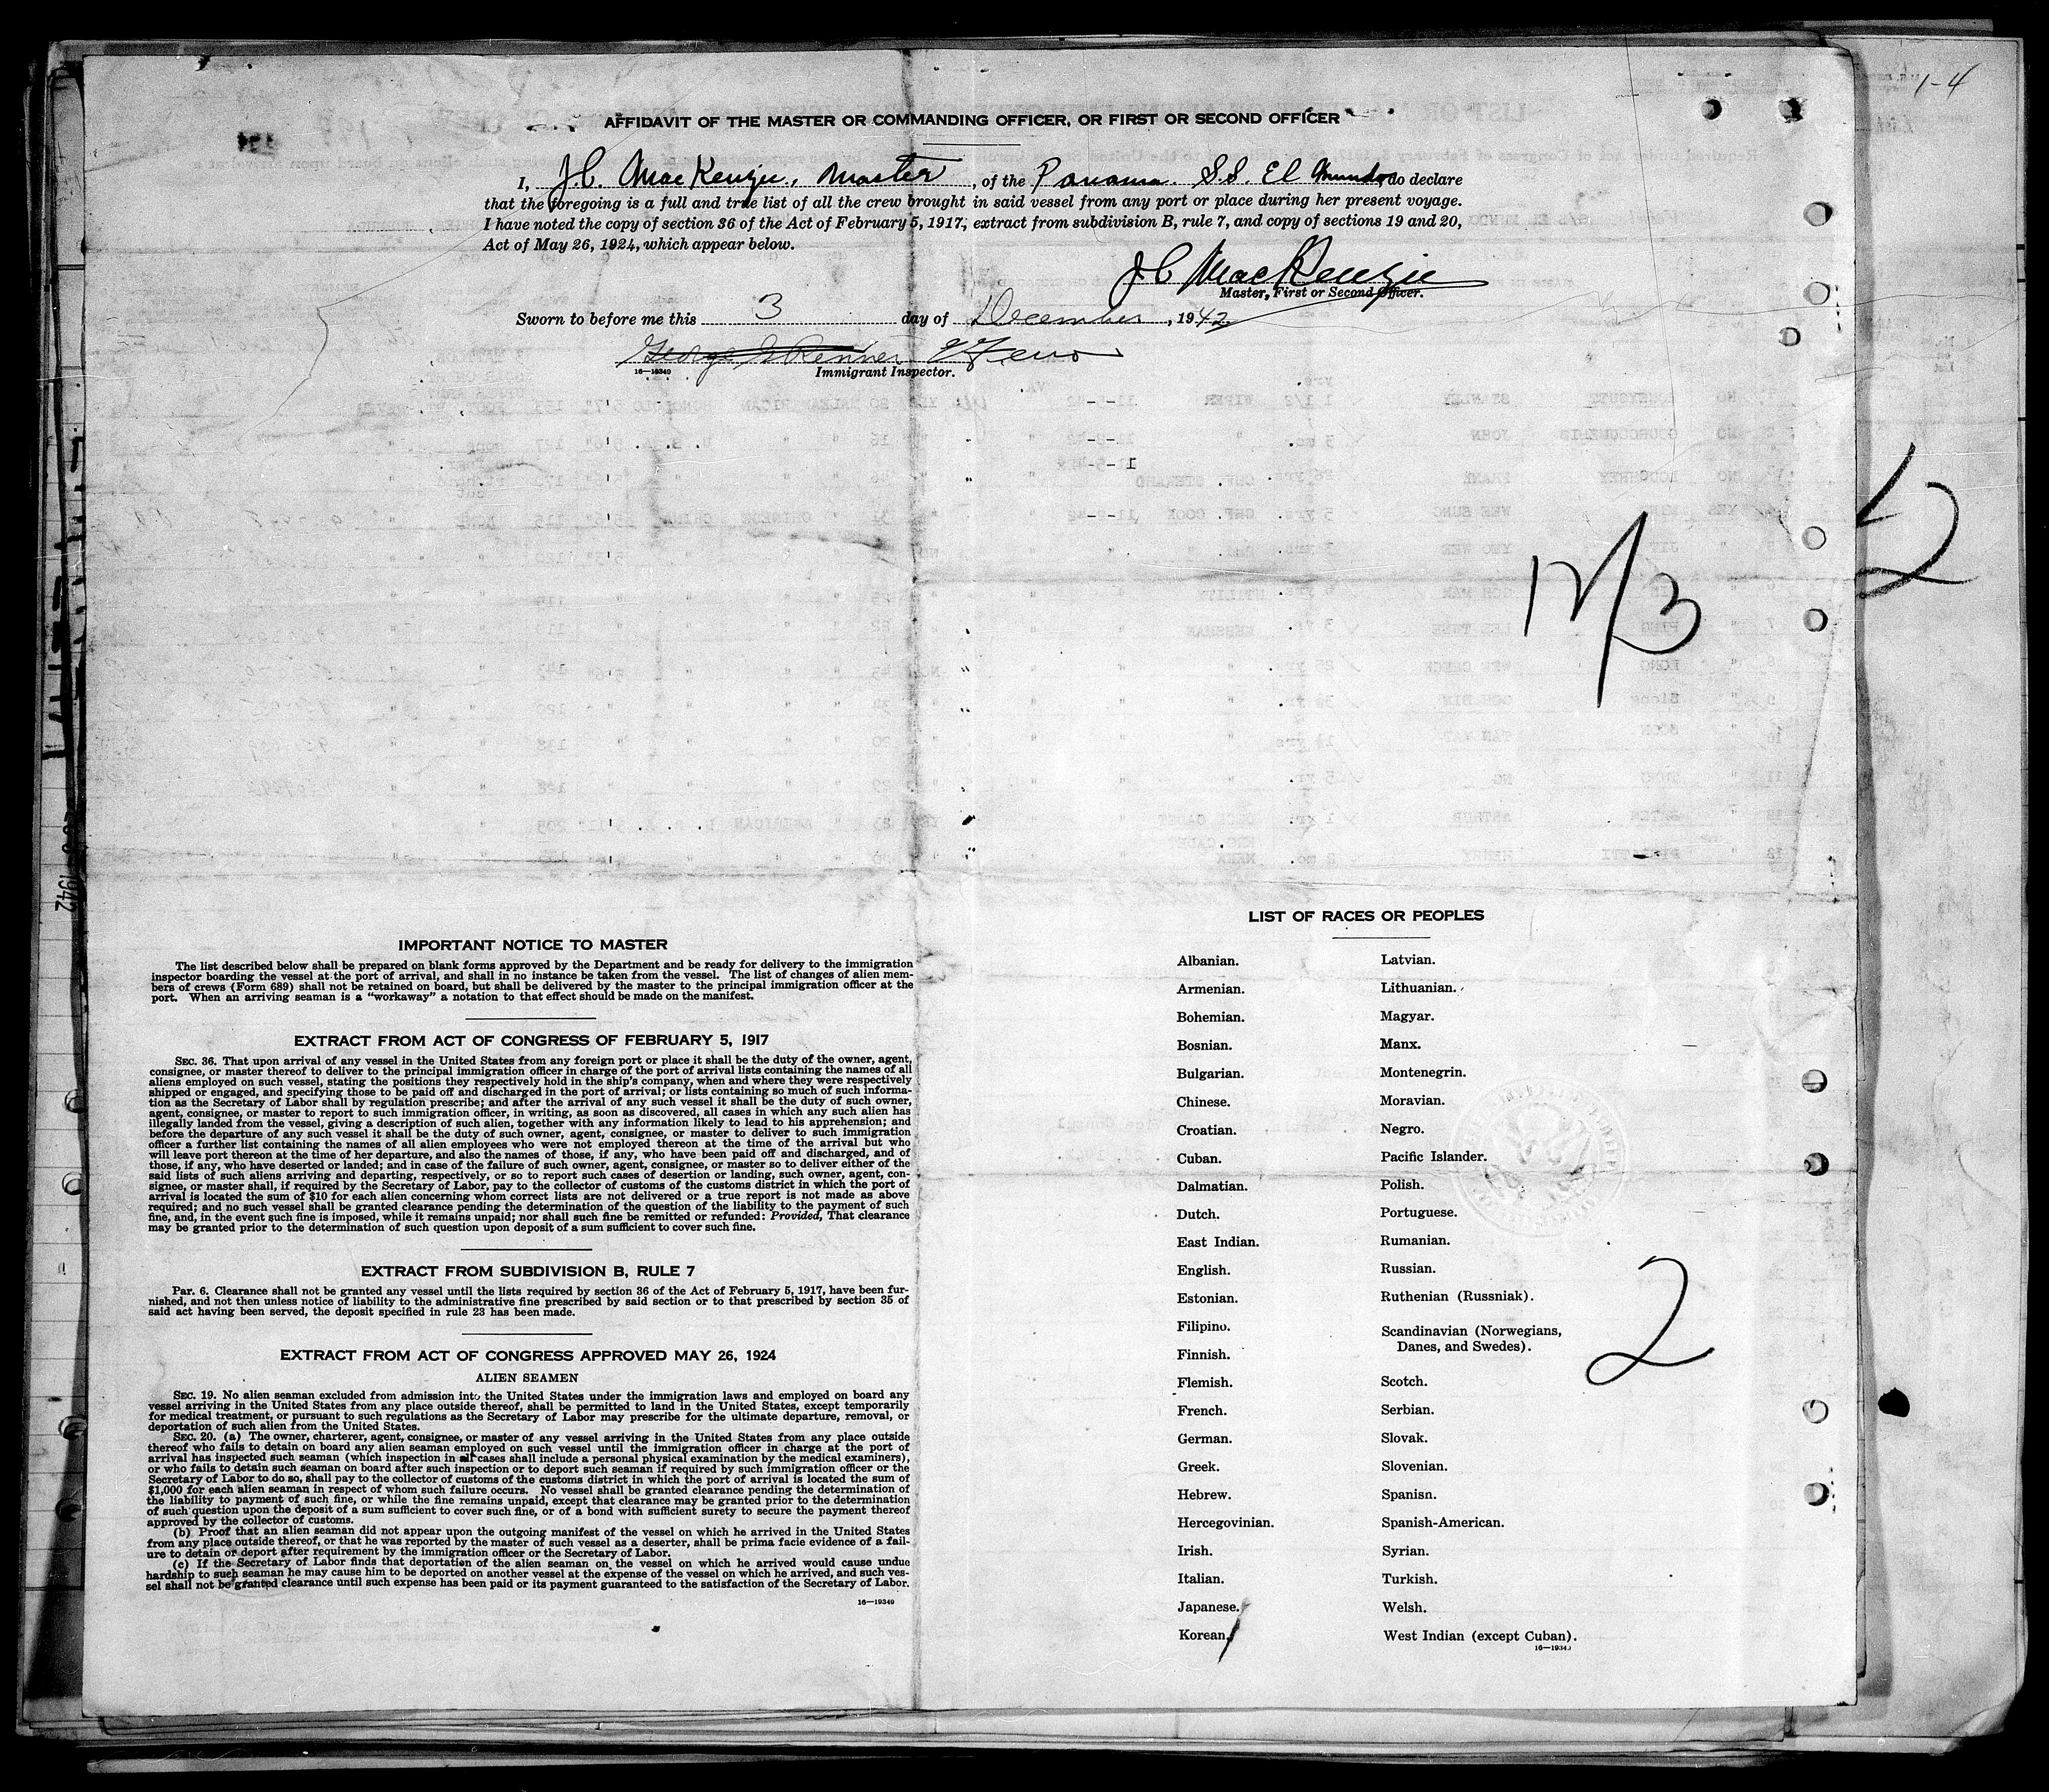 1-4
AFFIDAVIT OF THE MASTER OR COMMANDING OFFICER, OR FIRST OR SECOND OFFICER
I, J.C. MacKenzie, Master, of the Panama. S.S. El Mundo, do declare
that the foregoing is a full and true list of all the crew brought in said vessel from any port or place during her present voyage.
I have noted the copy of section 36 of the Act of February 5, 1917, extract from subdivision B, rule 7, and copy of sections 19 and 20,
Act of May 26, 1924, which appear below.
J C MacKenzie
Master, First or Second Officer.
Sworn to before me this 3 day of December, 1942
16—19349
Immigrant Inspector.
12/3
2
1942
IMPORTANT NOTICE TO MASTER
The list described below shall be prepared on blank forms approved by the Department and be ready for delivery to the immigration
inspector boarding the vessel at the port of arrival, and shall in no instance be taken from the vessel. The list of changes of alien mem-
bers of crews (Form 689) shall not be retained on board, but shall be delivered by the master to the principal immigration officer at the
port. When an arriving seaman is a "workaway" a notation to that effect should be made on the manifest.
EXTRACT FROM ACT OF CONGRESS OF FEBRUARY 5, 1917
SEC. 36. That upon arrival of any vessel in the United States from any foreign port or place it shall be the duty of the owner, agent,
consignee, or master thereof to deliver to the principal immigration officer in charge of the port of arrival lists containing the names of all
aliens employed on such vessel, stating the positions they respectively hold in the ship's company, when and where they were respectively
shipped or engaged, and specifying those to be paid off and discharged in the port of arrival; or lists containing so much of such informa-
tion as the Secretary of Labor shall by regulation prescribe; and after the arrival of any such vessel it shall be the duty of such owner,
agent, consignee, or master to report to such immigration officer, in writing, as soon as discovered, all cases in which any such alien has
illegally landed from the vessel, giving a description of such alien, together with any information likely to lead to his apprehension; and
before the departure of any such vessel it shall be the duty of such owner, agent, consignee, or master to deliver to such immigration
officer a further list containing the names of all alien employees who were not employed thereon at the time of the arrival but who
will leave port thereon at the time of her departure, and also the names of those, if any, who have been paid off and discharged, and of
those, if any, who have deserted or landed; and in case of the failure of such owner, agent, consignee, or master so to deliver either of the
said lists of such aliens arriving and departing, respectively, or so to report such cases of desertion or landing, such owner, agent, con-
signee, or master shall, if required by the Secretary of Labor, pay to the collector of customs of the customs district in which the port of
arrival is located the sum of $10 for each alien concerning whom correct lists are not delivered or a true report is not made as above
required; and no such vessel shall be granted clearance pending the determination of the question of the liability to the payment of such
fine, and, in the event such fine is imposed, while it remains unpaid; nor shall such fine be remitted or refunded: Provided, That clearance
may be granted prior to the determination of such question upon deposit of a sum sufficient to cover such fine.
EXTRACT FROM SUBDIVISION B, RULE 7
Par. 6. Clearance shall not be granted any vessel until the lists required by section 36 of the Act of February 5, 1917, have been fur-
nished, and not then unless notice of liability to the administrative fine prescribed by said section or to that prescribed by section 35 of
said act having been served, the deposit specified in rule 23 has been made.
EXTRACT FROM ACT OF CONGRESS APPROVED MAY 26, 1924
ALIEN SEAMEN
SEC. 19. No alien seaman excluded from admission into the United States under the immigration laws and employed on board any
vessel arriving in the United States from any place outside thereof, shall be permitted to land in the United States, except temporarily
for medical treatment, or pursuant to such regulations as the Secretary of Labor may prescribe for the ultimate departure, removal, or
deportation of such alien from the United States.
SEC. 20. (a) The owner, charterer, agent, consignee, or master of any vessel arriving in the United States from any place outside
thereof who fails to detain on board any alien seaman employed on such vessel until the immigration officer in charge at the port of
arrival has inspected such seaman (which inspection in all cases shall include a personal physical examination by the medical examiners),
or who fails to detain such seaman on board after such inspection or to deport such seaman if required by such immigration officer or the
Secretary of Labor to do so, shall pay to the collector of customs of the customs district in which the port of arrival is located the sum of
$1,000 for each alien seaman in respect of whom such failure occurs. No vessel shall be granted clearance pending the determination of
the liability to payment of such fine, or while the fine remains unpaid, except that clearance may be granted prior to the determination
of such question upon the deposit of a sum sufficient to cover such fine, or of a bond with sufficient surety to secure the payment thereof
approved by the collector of customs.
(b) Proof that an alien seaman did not appear upon the outgoing manifest of the vessel on which he arrived in the United States
from any place outside thereof, or that he was reported by the master of such vessel as a deserter, shall be prima facie evidence of a fail-
ure to detain or deport after requirement by the immigration officer or the Secretary of Labor.
(c) If the Secretary of Labor finds that deportation of the alien seaman on the vessel on which he arrived would cause undue
hardship to such seaman he may cause him to be deported on another vessel at the expense of the vessel on which he arrived, and such ves-
sel shall not be granted clearance until such expense has been paid or its payment guaranteed to the satisfaction of the Secretary of Labor.
16—19349
LIST OF RACES OR PEOPLES
Albanian.
Armenian.
Bohemian.
Bosnian.
Bulgarian.
Chinese.
Croatian.
Cuban.
Dalmatian.
Dutch.
East Indian.
English.
Estonian.
Filipino.
Finnish.
Flemish.
French.
German.
Greek.
Hebrew.
Hercegovinian.
Irish.
Italian.
Japanese.
Korean.
Latvian.
Lithuanian.
Magyar.
Manx.
Montenegrin.
Moravian.
Negro.
Pacific Islander.
Polish.
Portuguese.
Rumanian.
Russian.
Ruthenian (Russniak).
Scandinavian (Norwegians,
Danes, and Swedes).
Scotch.
Serbian.
Slovak.
Slovenian.
Spanish.
Spanish-American.
Syrian.
Turkish.
Welsh.
West Indian (except Cuban).
2